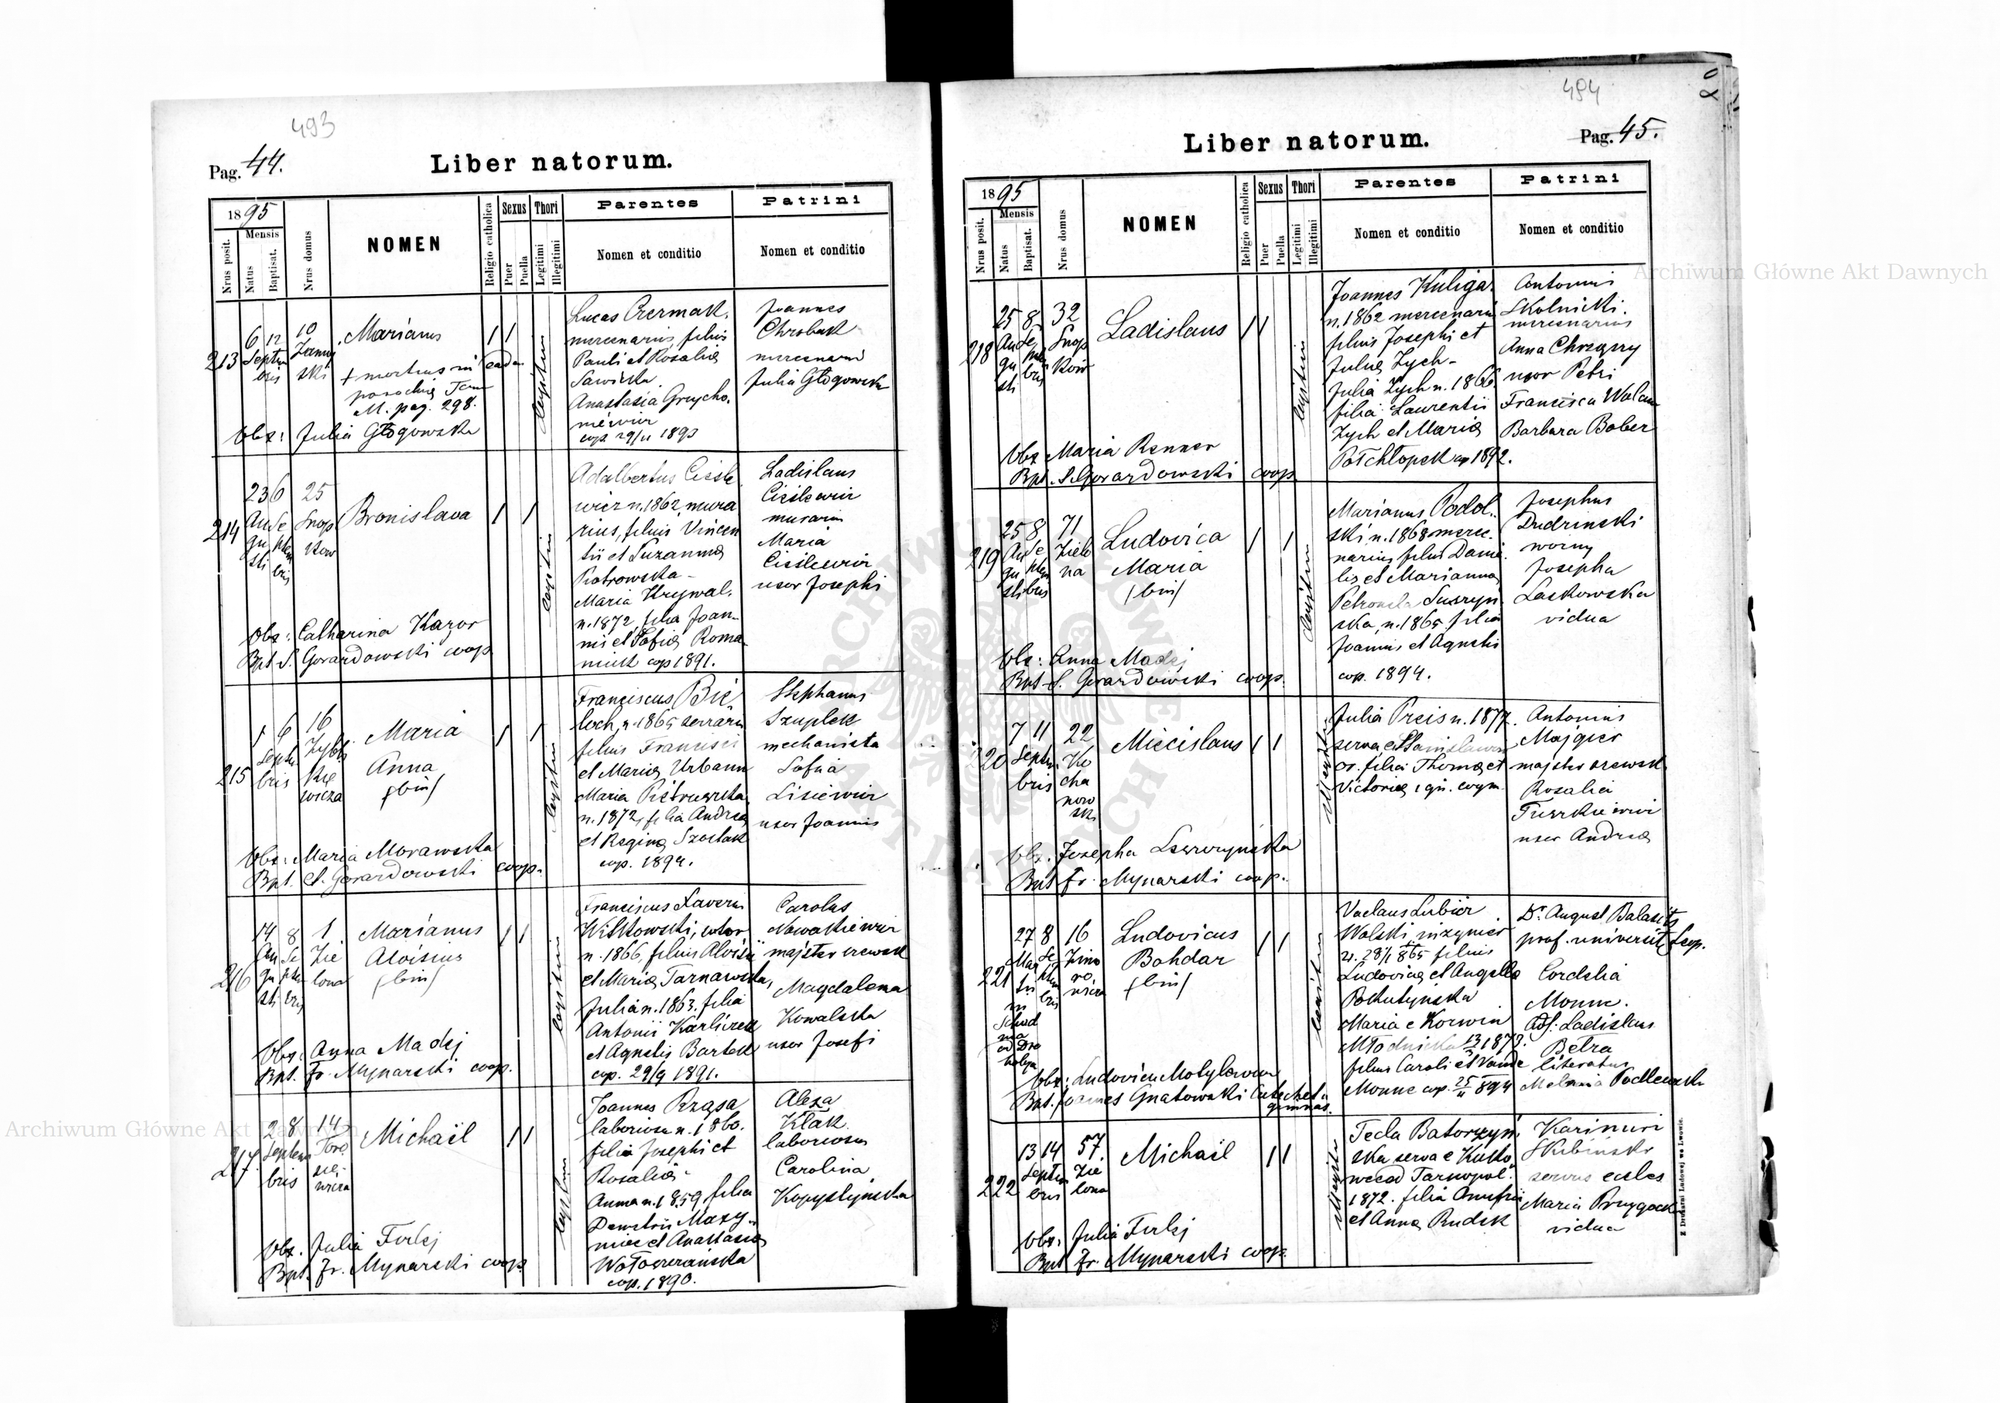 493
Pag. 44.
Liber natorum.
1895
Mensis
Nrus posit.
Natus
Baptisat.
Nrus domus
NOMEN
Religio catholica
Sexus
Puer
Puella
Thori
Legitimi
Illegitimi
Parentes
Nomen et conditio
Patrini
Nomen et conditio
213
6 12
Septem
bris
10
Marianus
+ mortuus in
M. pag. 298.
Obs: Julia Głogowska
Lucas Czermak
mercenarius, filius
Pauli et Rosalia
Sawicka
Anastasia Grycho
cop 29/11 1893
Joannes
Chrobak
mercenarius
Julia Głogowska
214
23 6
Au Se
gu ptem
sti bris
25
Snop
kow
Bronislava
Obs: Catharina Kazor
Bpt. S. Gorardowski coop
Adalbertus Cieśle
wicz n. 1862, mura
rius, filius Vincen
tii et Suzanna
Piotrowska -
Maria Krywal.
n. 1872, filia Joan
nis et Sofia Roma
niuk cop 1891.
Ladislaus
Cieślewicz
murarius
Maria
Cieślewicz
uxor Josephi
215
1 6
Septem
bris
16
Zybli
kie
wicza
Maria
Anna
(bin)
Obs: Maria Morawska
Bpt. S. Gorardowski coop.
Franciscus Bie
loch, n. 1865 serrarius
filius Francisci
et Maria Urbann
Maria Pietruszka
n. 1872, filia Andrea
et Regina Szostak
cop. 1894.
Stephanus
Szuplek
mechanista
Sofia
Lisiewicz
uxor Joannis
216
14 8
Au Se
gu ptem
sti bris
1
Zie
lona
Marianus
Aloisius
(bin)
Obs: Anna Madej
Bpt. Fr. Mynarski coop.
Franciscus Xaverus
Witkowski, sutor
n. 1866, filius Aloisii
et Maria Tarnawska,
Julia n. 1863. filia
Antonii Karliczek
et Agnetis Bartek
cop. 29/9 1891.
Carolus
Nowakiewicz
majster szewski
Magdalena
Kowalska
uxor Josefi
217.
2 8
Septem
bris
14
Toro
sie
wicza
Michaël
Obs. Julia Firlej
Bpt. Fr. Mynarski coop.
Joannes Rząsa
laboriosus n. 1860.
filia Josephi et
Rosalia
Anna n. 1859 filia
Demetrii Mazy
miec et Anastasia
Wołoszczańska
cop. 1890.
Alexa
Kłak
laboriosus
Carolina
Kopystyńska
494
Liber natorum.
Pag. 45.
1895
Mensis
Nrus posit.
Natus
Baptisat.
Nrus domus
NOMEN
Religio catholica
Sexus
Puer
Puella
Thori
Legitimi
Illegitimi
Parentes
Nomen et conditio
Patrini
Nomen et conditio
218
25 8
Au Se
gu ptem
sti bris
32
Snop
kow
Ladislaus
Obs Maria Renner
Bpt. S. Gorardowski coop
Joannes Kuliga
n. 1862 mercenarius
filius Josephi et
Julia Zych -
Julia Zych n. 1866
filia Laurentii
Zych et Maria
Połchłopek cop 1892.
Antonius
Skolnicki.
mercenarius
Anna Chrzązcy
uxor Petri
Francisca Walcu
Barbara Bober
219
25 8
Au Se
gu ptem
sti bris
71
Zielo
na
Ludovica
Maria
(bin)
Obs: Anna Madej
Bpt S. Gorardowski coop.
Marianus Podol
ski, n. 1868 merce
narius, filius Danie
lis et Marianna
ska, n. 1865, filia
Joannis et Agnetis
cop. 1894.
Josephus
Dudzinski
woźny
Josepha
Laskowska
vidua
220
7 11
Septem
bris
22
Ko
cha
now
ski
Miecislaus
Obs. Josepha Leszczyńska
Bpt Fr. Mynarski coop.
Julia Preis n. 1877.
serva e Stanislawow
or. filia Thoma et
Victoria
Antonius
Majgier
majster szewski
Rosalia
Tuszkiewicz
uxor Andrea
221
27 8
Mar
tii
in
Schod
nica
16
Zimo
ro
wicza
Ludovicus
Bohdar
(bin)
Obs: Ludovica Motylewicz
Bpt. Joannes Gnatowski Catechet.
gimnas.
Vaclaus Lubicz
Wolski inżynier
n. 23/1 865 filius
Ludovica et Angella
Pokutyńska
Maria e Korwin
Młodnicka 13/ 1873.
filius Caroli et Vanda
Monne cop. 25/11 894
Dr. August Balasits
prof. universit. Leop.
Cordelia
Monne.
Adf. Ladislaus
Bełza
literatus
Melania Podlewska
222
13 14
Septem
bris
57.
Zie
lona
Michaël
Obs: Julia Firlej
Bpt Fr. Mynarski coop.
Tecla Batorzyń
ska serva e
Tarnopol.
1872. filia Onufrii
et Anna Rudek
Kazimiri
Skibinski
servus eccles
Maria Przygocka
vidua
Z Drukarni Ludowej we Lwowie.
Archiwum Główne Akt Dawnych
Archiwum Główne Akt Dawnych